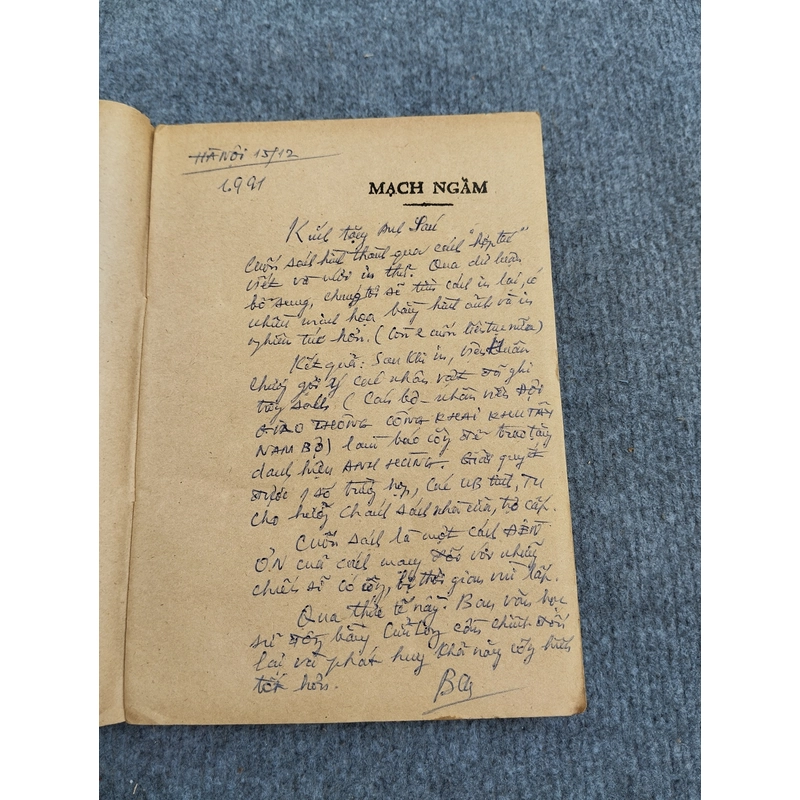 HÀ NỘI 15/12
1991
MẠCH NGẦM
Kính tặng Anh Sáu
Cuốn sách hình thành qua cách "hợp tác"
viết và in thử. Qua dư luận
bổ sung, chúng tôi sẽ tìm cách in lại, có
nhiều minh họa bằng hình ảnh và in
nghiêm túc hơn. (Còn 2 cuốn tiếp tục nữa)
Kết quả: Sau khi in, viện Huân
chương gợi ý các nhân vật đã ghi
trong sách (Cán bộ - nhân viên ĐỘI
GIAO THÔNG CÔNG KHAI KHU TÂY
NAM BỘ) làm báo công để trao tặng
danh hiệu ANH HÙNG. Giải quyết
được 1 số trường hợp, các UB tỉnh, TU
cho hưởng chính sách nhà cửa, trợ cấp.
Cuốn sách là một cách ĐỀN
ƠN của cách mạng đối với những
chiến sĩ có công, bị thời gian vùi lấp.
Qua thực tế này: Ban văn học
sử đồng bằng Cửu Long cần chỉnh đốn
lại và phát huy khả năng công trình
tốt hơn.